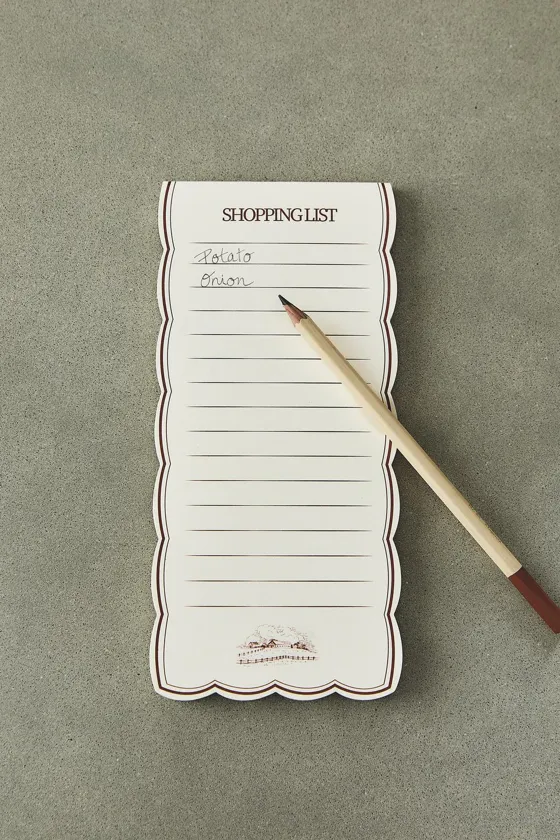 SHOPPING LIST
Potato
Onion